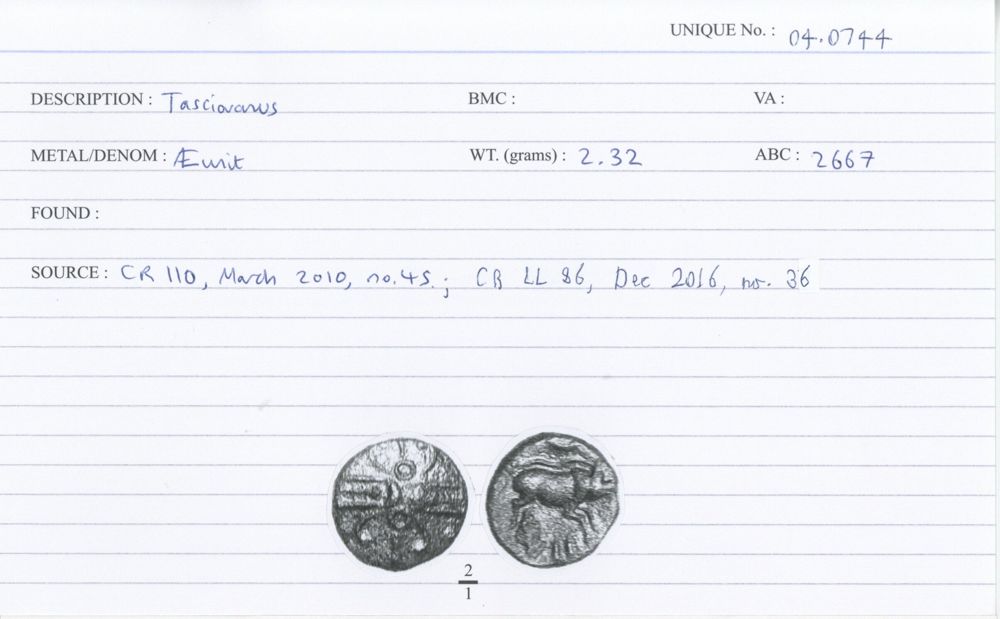 UNIQUE No. : 04.0744
DESCRIPTION : Tasciovanus BMC : VA :
METAL/DENOM : Æ unit WT. (grams) : 2.32 ABC : 2667
FOUND :
SOURCE : CR 110, March 2010, no. 45.; CR LL 86, Dec 2016, no. 36
2
1